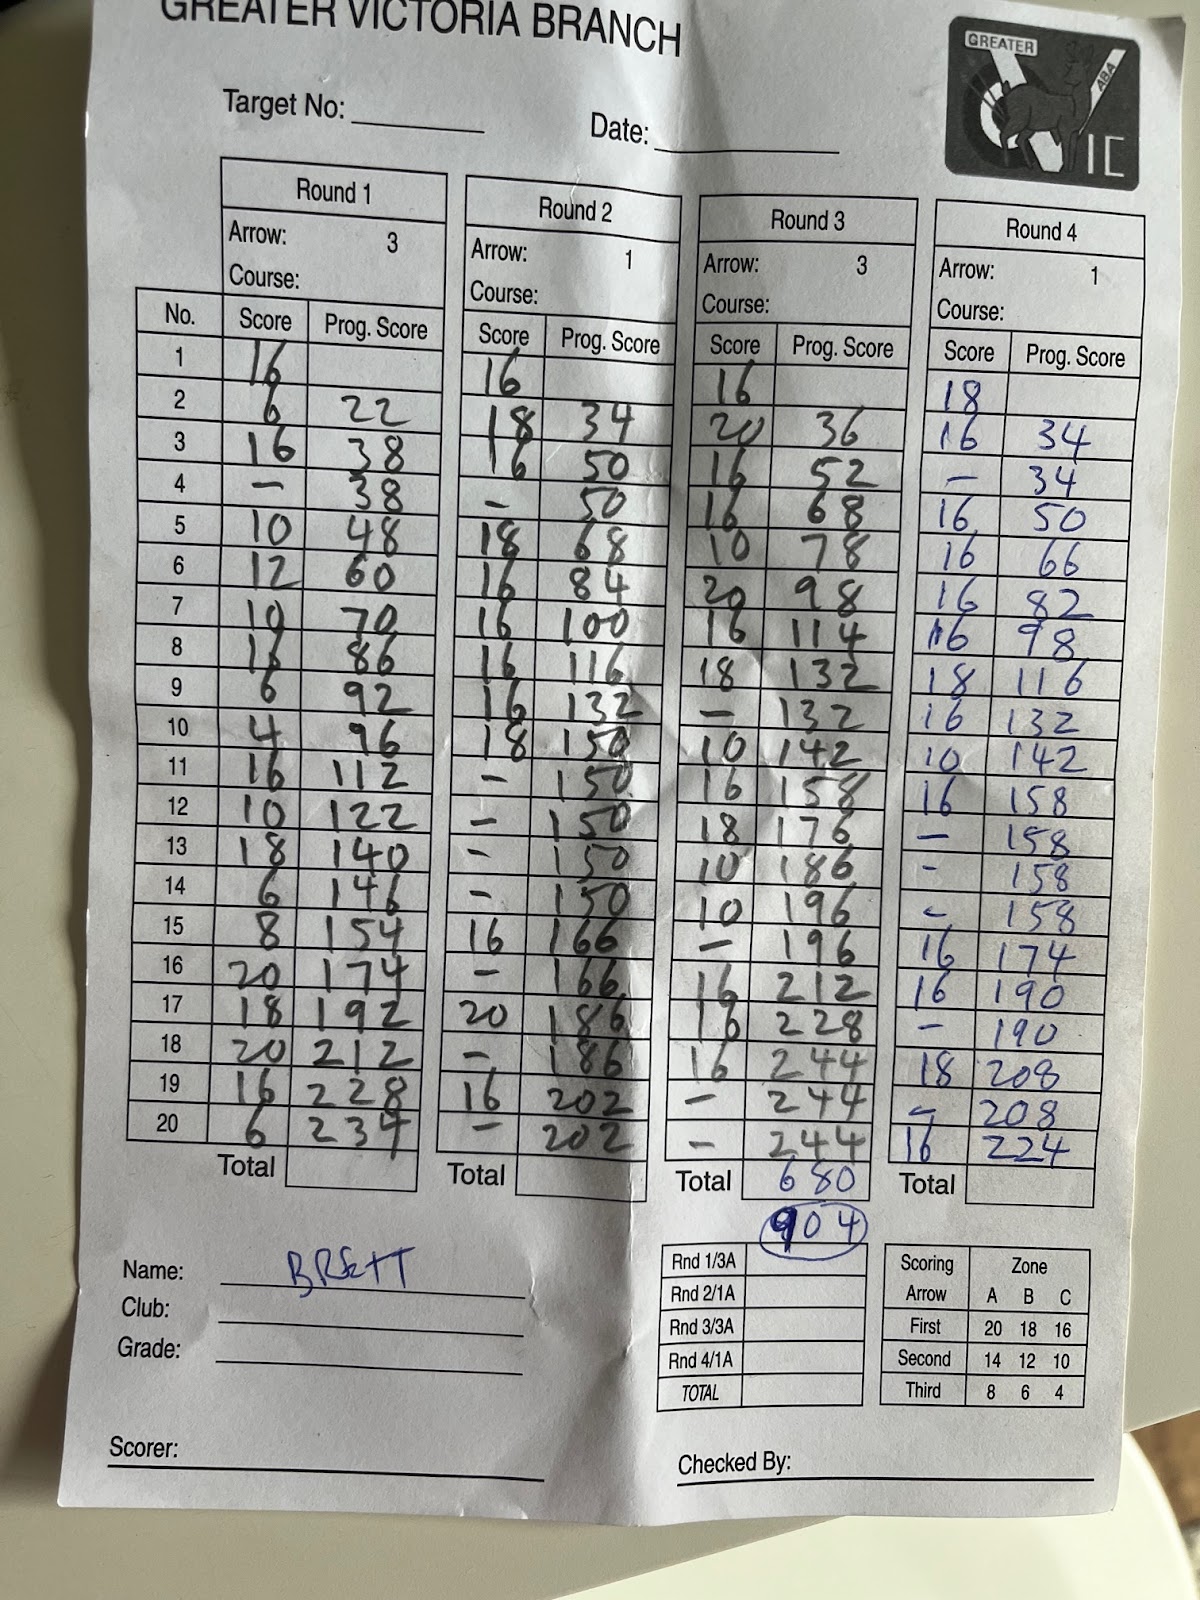 GREATER VICTORIA BRANCH
GREATER
ABA
VIC
Target No:
Date:
Round 1 Round 2 Round 3 Round 4
Arrow: 3 Arrow: 1 Arrow: 3 Arrow: 1
Course: Course: Course: Course:
No. Score Prog. Score Score Prog. Score Score Prog. Score Score Prog. Score
1 16 16 16 18
2 6 22 18 34 20 36 16 34
3 16 38 16 50 16 52 – 34
4 – 38 – 50 16 68 16 50
5 10 48 18 68 10 78 16 66
6 12 60 16 84 20 98 16 82
7 10 70 16 100 16 114 16 98
8 16 86 16 116 18 132 18 116
9 6 92 16 132 – 132 16 132
10 4 96 18 150 10 142 10 142
11 16 112 – 150 16 158 16 158
12 10 122 – 150 18 176 – 158
13 18 140 – 150 10 186 – 158
14 6 146 – 150 10 196 – 158
15 8 154 16 166 – 196 16 174
16 20 174 – 166 16 212 16 190
17 18 192 20 186 16 228 – 190
18 20 212 – 186 16 244 18 208
19 16 228 16 202 – 244 – 208
20 6 234 – 202 – 244 16 224
Total Total Total 680 Total
904
Name: BRETT
Club:
Grade:
Rnd 1/3A
Rnd 2/1A
Rnd 3/3A
Rnd 4/1A
TOTAL
Scoring Zone
Arrow A B C
First 20 18 16
Second 14 12 10
Third 8 6 4
Scorer:
Checked By: